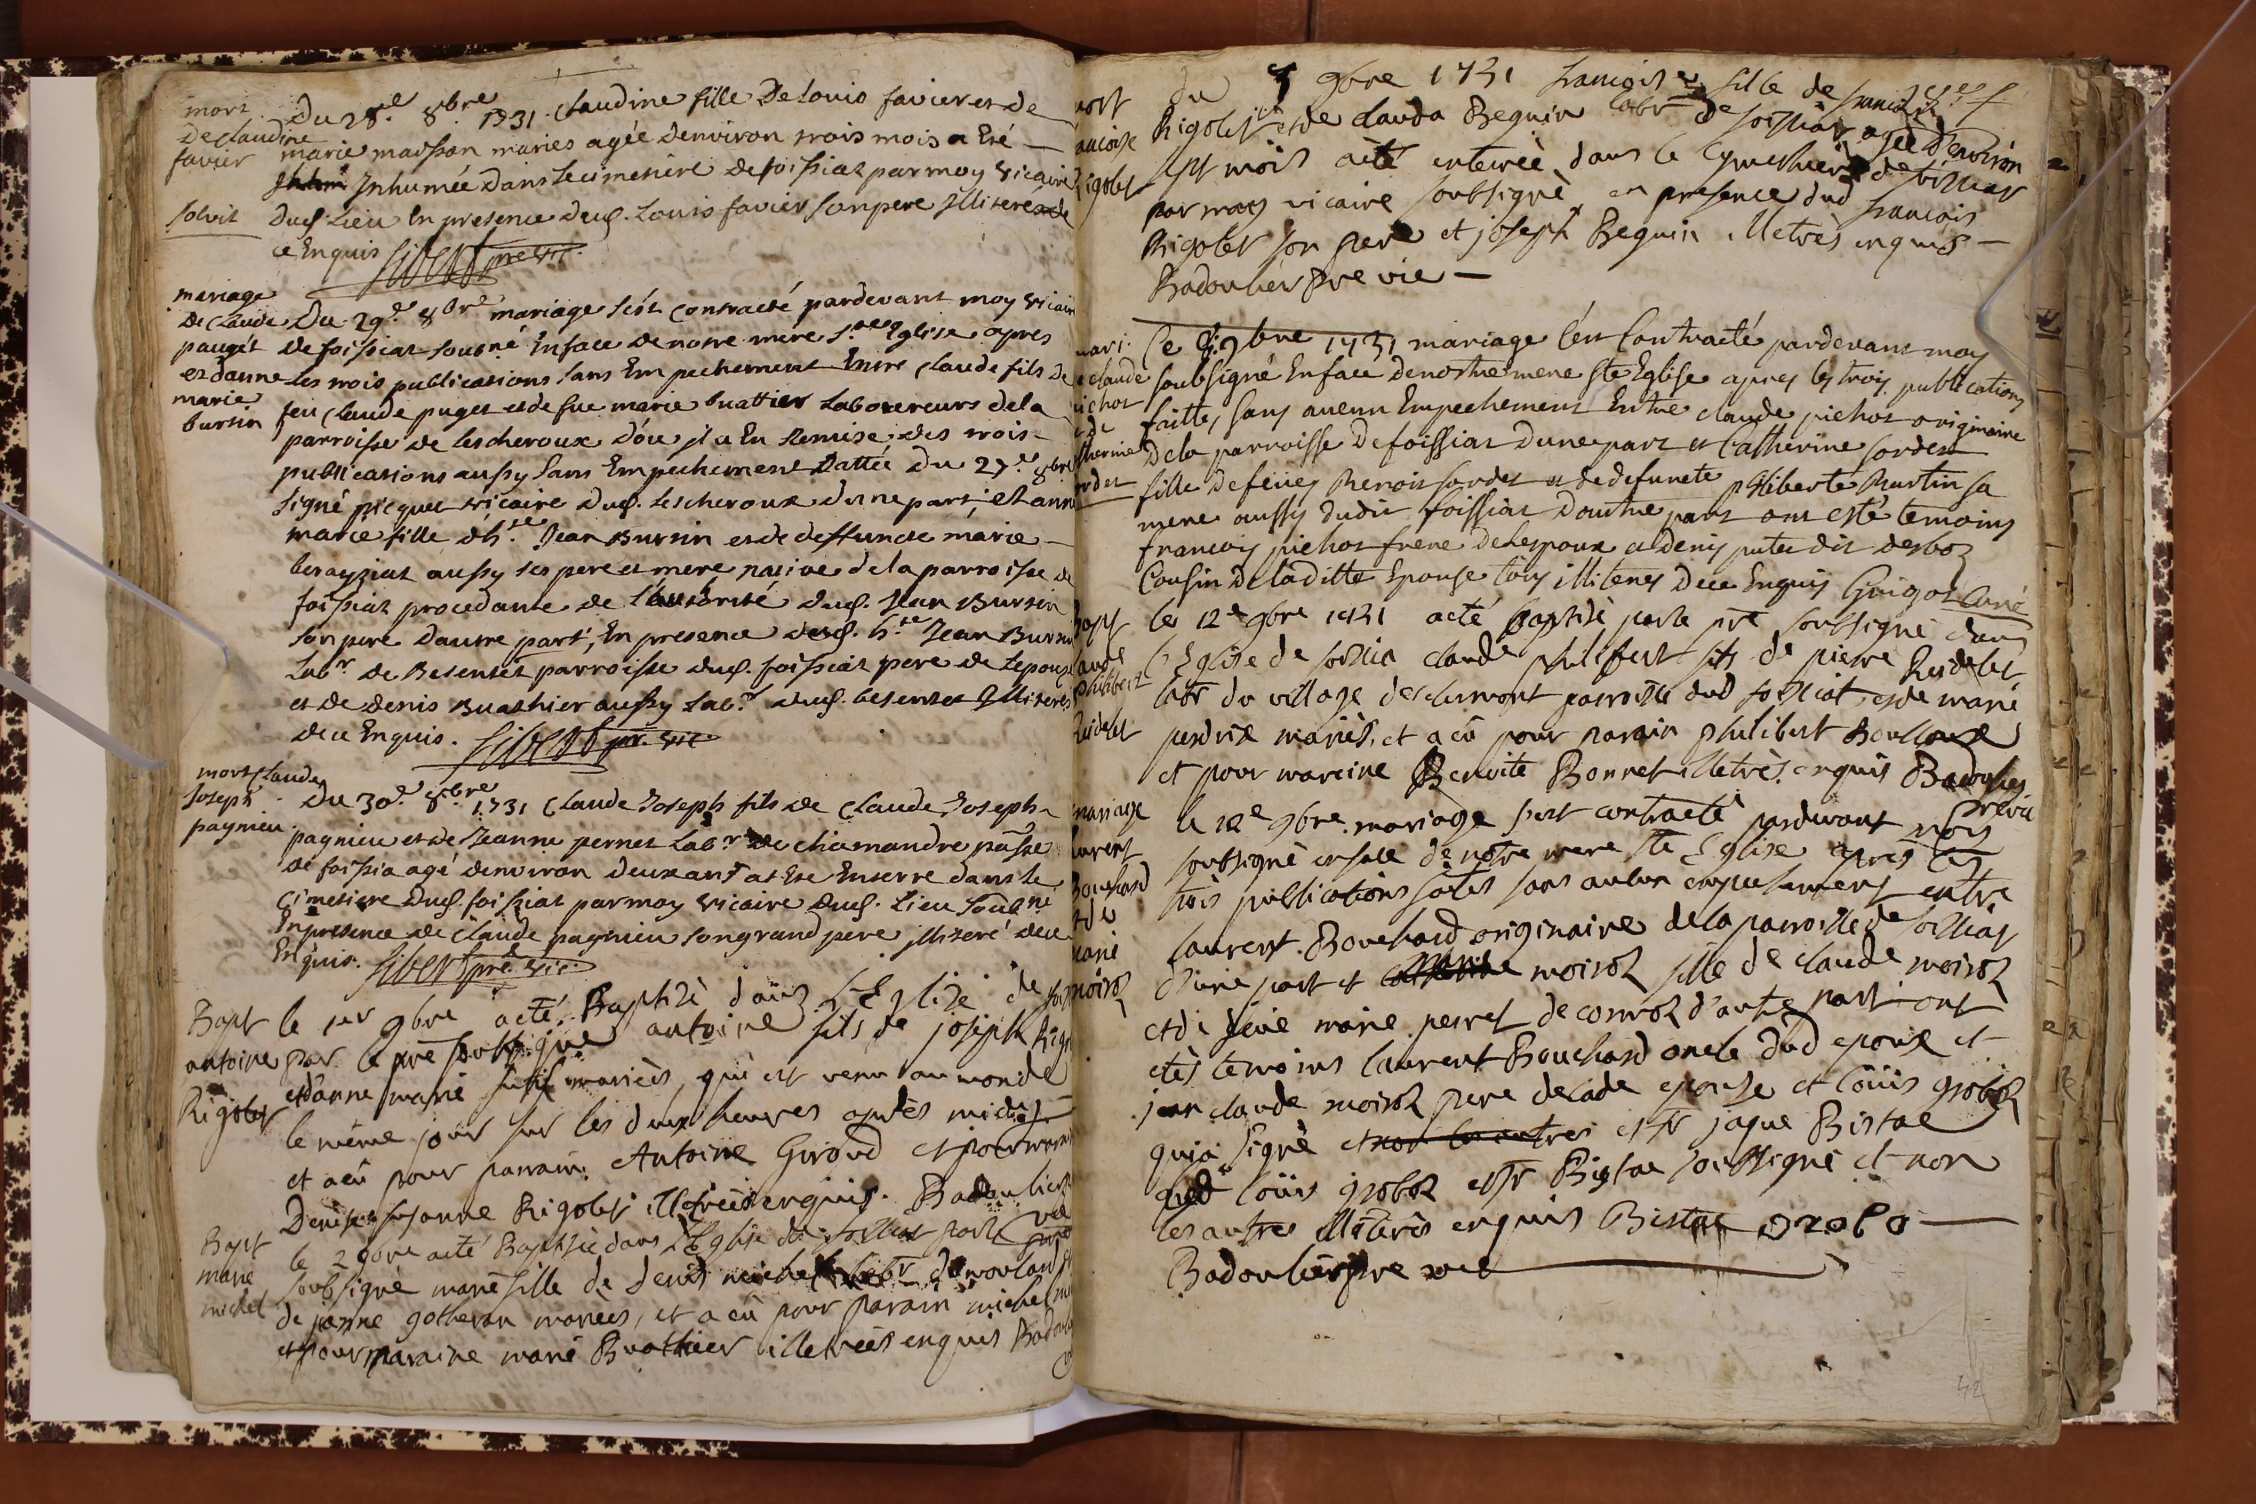 mort
De Claudine
favier
solvit
Du 28.e 8bre 1731 Claudine fille De Louis favier et de
marie maisson mariés agée denviron trois mois a Eté
Inhumée dans le cimetiére de foissiat par moy vicaire
dud. Lieu En presence dud. Louis favier son pere Illiteré de
ce Enquis Sibert pre vic.
mariage
de Claude
pauget
et danne
marie
bursin
Du 29.e 8bre mariage s'est Contracté pardevant moy vicaire
de foissiat sousné En face de notre mere ste Eglise apres
les trois publications sans Empechement Entre Claude fils De
feu Claude puget et de fue marie buattier Laboureurs de la
parroisse de lescheroux d'ou il a Eu Remise des trois
publications aussy sans Empechement Dattée Du 27.e 8bre
signé picquet vicaire dud. Lescheroux d'une part; Et anne
marie fille d'h.te Jean Bursin et de deffuncte marie
berayziat aussy ses pere et mere native de la parroisse de
foissiat procedante de l'authorité dud. Jean Bursin
son pere dautre part; En presence dud. h.te Jean Bursin
Lab.r de Besentet parroisse dud. foissiat pere de Lepouse
et de denis Buathier aussy Lab.r dud. besentet Illiterés
de ce Enquis. Sibert pr. vic
mort Claude
Joseph
pagnieu
Du 30.e 8bre 1731 Claude Joseph fils de Claude Joseph
pagnieu et de Jeanne pernet Lab.r de chamandre passe
de foissia agé denviron deux ans at Ete Enterré dans le
Cimetiere dud. foissiat par moy vicaire dud. Lieu soubné
En presence de Claude pagnieu son grand pere illiteré de ce
Enquis. Sibert pre vic.
Bapt
antoine
Rigolet
le 1er 9bre a eté Baptisé dans L'Eglise de
par le pre soubsigné antoine fils de joseph
et d'anne marie mariés, qui est venu au monde
le même jour sur les deux heures après midi
et a eû pour parrain Antoine Giroud et pour
Denise susanne Rigolet illetrés enquis. Badoulier
Bapt
marie
michel
le 2 9bre a eté Baptisée dans L'Eglise de foissiat par le
soubsigné marie fille de denis michel labr
de janne gotheran mariés, et a eu pour parain michel
et pour maraine marie Buathier illetrés enquis
mort
ancoise
rigolet
du 7 9bre 1731 francoise fille de francois
Rigolet et de clauda Beguin labr de foissiat agée d'environ
sept mois a eté enterrée dans le cymethiere de foissiat
par moy vicaire soubsigné en presence dud francois
Rigolet son pere et joseph Beguin illetrés enquis
Badoulier pre vic
mari.
claude
pichot
de
therine
ordet
Ce 9bre 1731 mariage s'est Contracté pardevant moy
soubsigné En face de nostre mere ste Eglise apres les trois publications
faitte, sans aucun Empechement Entre claude pichot originaire
De la parroisse de foissiat dune part et Catherine sordet
fille de feüe Benoit sordet et de defunte philiberte Martin sa
mere aussy dudit foissiat d'autre part ont esté temoins
francois pichot frere de Lespoux et denis putu dit desboz
Cousin De laditte Epouse tous illiteres de ce Enquis Guigot Curé
bapt
claude
philibert
Reidelet
le 12e 9bre 1731 a eté baptisé par le pre soubsigné dans
l'Eglise de foissia claude philibert fils de pierre Reidelet
labr du village desclermont parroisse dud foissiat et de marie
perdrix mariés, et a eû pour parain philibert
et pour mareine Benoite Bonnet illetrés enquis Badoulier
pre vic
mariage
laurent
Bouchard
et de
marie
moiroz
le 12e 9bre mariage s'est contracté pardevant nous
soubsigné en face de notre mere ste Eglise apres les
trois publications faites sans aucun empechement entre
laurent Bouchard originaire de la parroisse de foissiat
d'une part et moiroz fille de claude moiroz
et de feue marie perret de conroz d'autre part ont
etés temoins laurent Bouchard oncle dud epoux et
jean claude moiroz pere de lade epouse et Loüis groboz
qui a signé et non les autres et sr jaque Bistac
qued loüis groboz et sr Bistac soubsigné et non
les autres illiterés enquis Bistac Grobo
Badoulier pre vic
42